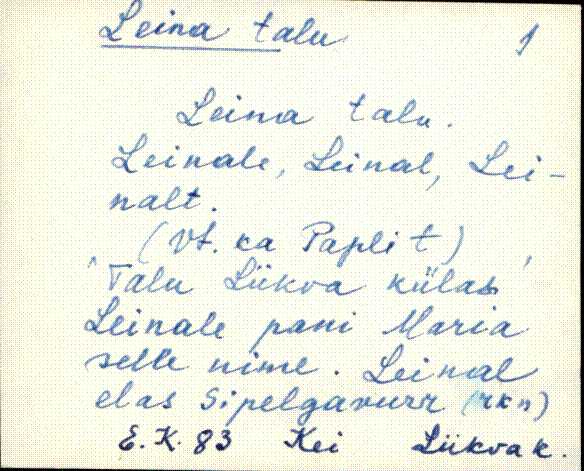 Leina talu 1
Leina talu.
Leinale, Leinal, Lei-
nalt.
(Vt. ka Paplit)
'Talu Liikva külas'
Leinale pani Maria
selle nime. Leinal
elas Sipelgavurr (rkn)
E.K. 83 Kei Liikva k.